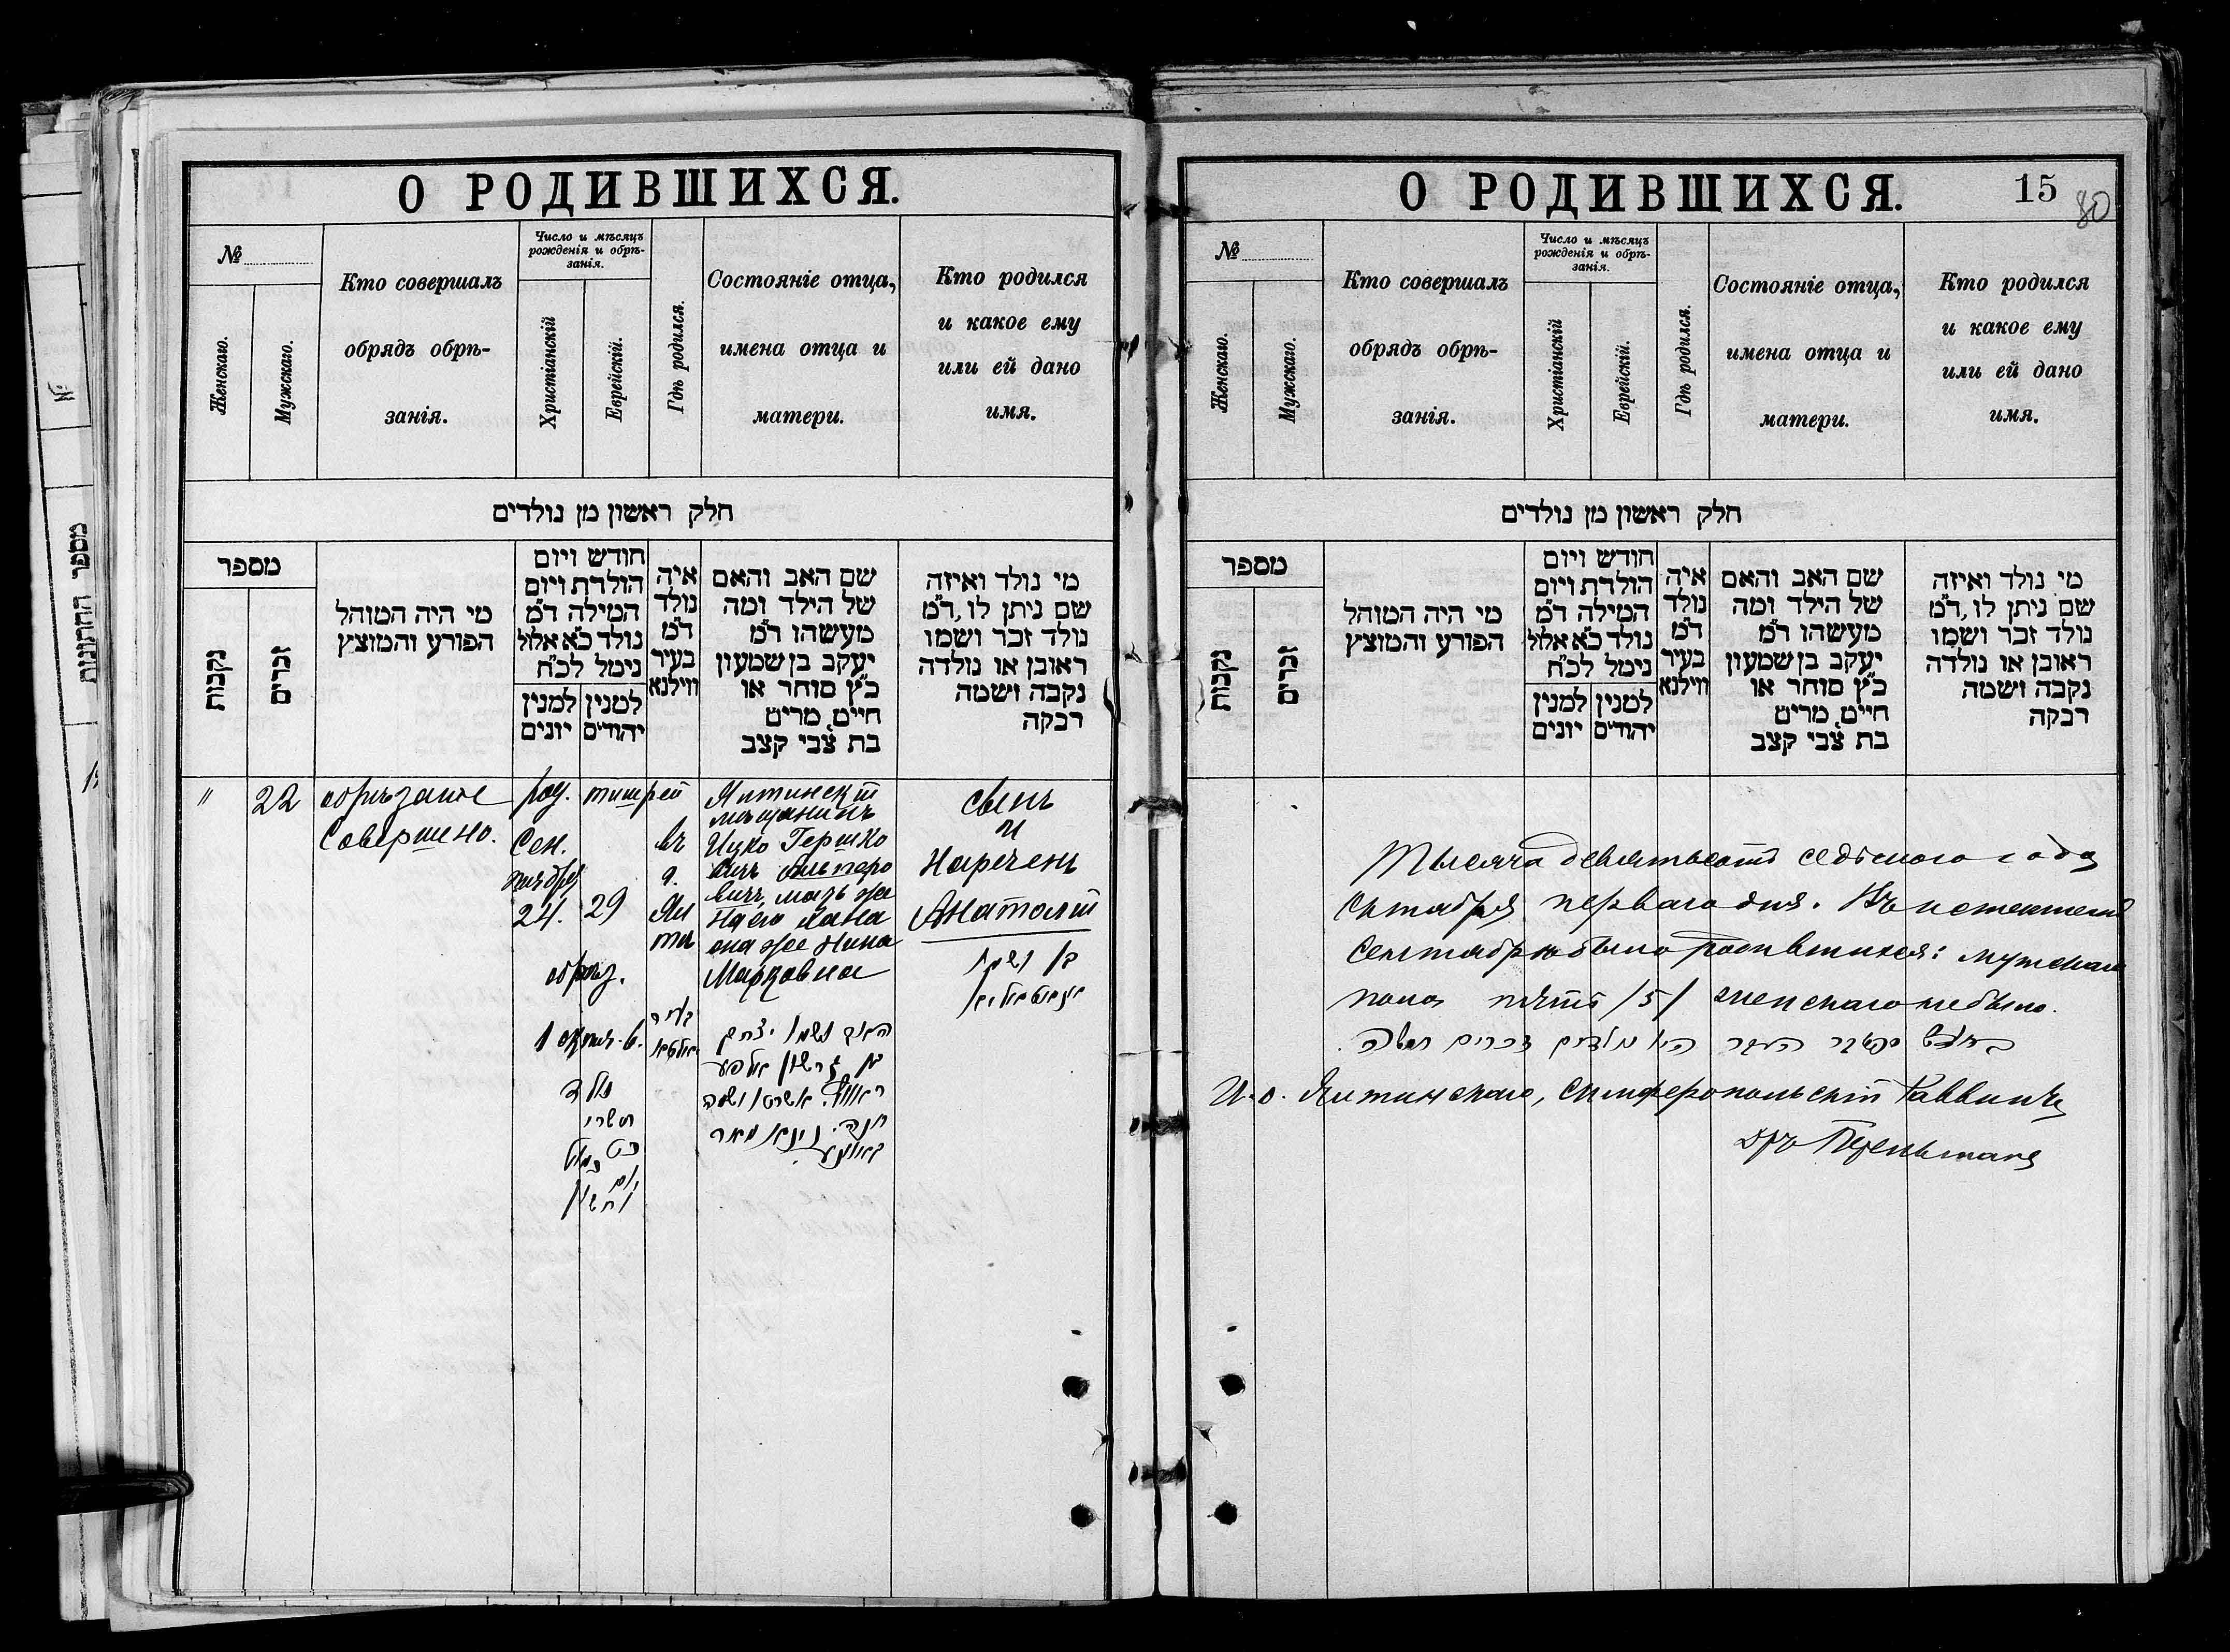 О РОДИВШИХСЯ.
№
Женскаго.
Мужскаго.
Кто совершалъ
обрядъ обрѣ-
занія.
Число и мѣсяцъ
рожденія и обрѣ-
занія.
Христіанскій
Еврейскій.
Гдѣ родился.
Состояніе отца,
имена отца и
матери.
Кто родился
и какое ему
или ей дано
имя.
חלק ראשון מן נולדים
מספר
נקבות
זכרים
מי היה המוהל
הפורע והמוצץ
חודש ויום
הולדת ויום
המילה ד"מ
נולד כ"א אלול
נימל לכ"ח
למנין יהודים
למנין יונים
איה
נולד
ד"מ
בעיר
ווילנא
שם האב והאם
של הילד ומה
מעשהו ד"מ
יעקב בן שמעון
כ"ץ סוחר או
חיים, מרים
בת צבי קצב
מי נולד ואיזה
שם ניתן לו, ד"מ
נולד זכר ושמו
ראובן או נולדה
נקבה ושמה
רבקה
"
22
обрѣзаніе
Совершено.
род.
Сен.
тября
24.
обрѣз.
1 октяб.
тишрей
29
въ
г.
Ял
тѣ
Ялтинскій
мѣщанинъ
Ицко Гершко
вичъ
вичъ, мать же
Хана
она же Нина
Марковна
сынъ
и
Нареченъ
Анатолій
נולד
תשרי
כט
О РОДИВШИХСЯ.
15
80
№
Женскаго.
Мужскаго.
Кто совершалъ
обрядъ обрѣ-
занія.
Число и мѣсяцъ
рожденія и обрѣ-
занія.
Христіанскій
Еврейскій.
Гдѣ родился.
Состояніе отца,
имена отца и
матери.
Кто родился
и какое ему
или ей дано
имя.
חלק ראשון מן נולדים
מספר
נקבות
זכרים
מי היה המוהל
הפורע והמוצץ
חודש ויום
הולדת ויום
המילה ד"מ
נולד כ"א אלול
נימל לכ"ח
למנין יהודים
למנין יונים
איה
נולד
ד"מ
בעיר
ווילנא
שם האב והאם
של הילד ומה
מעשהו ד"מ
יעקב בן שמעון
כ"ץ סוחר או
חיים, מרים
בת צבי קצב
מי נולד ואיזה
שם ניתן לו, ד"מ
נולד זכר ושמו
ראובן או נולדה
נקבה ושמה
רבקה
Тысяча девятьсотъ седьмого года
Октября перваго дня. Въ истекшемъ
Сентябрѣ было родившихся: мужскаго
пола пять /5/ женскаго не было.
И. о. Ялтинскаго, Симферопольскій Раввинъ